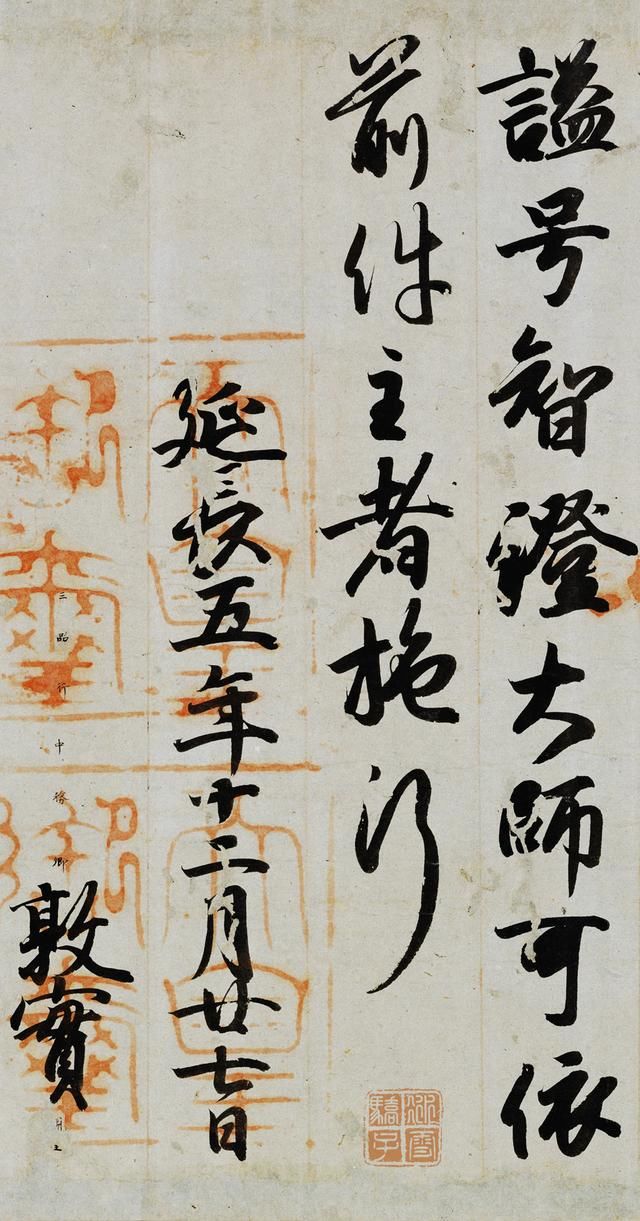 謚号智證大師可依
前件主者施行
延長五年十二月廿七日
三品行中務卿
敦實